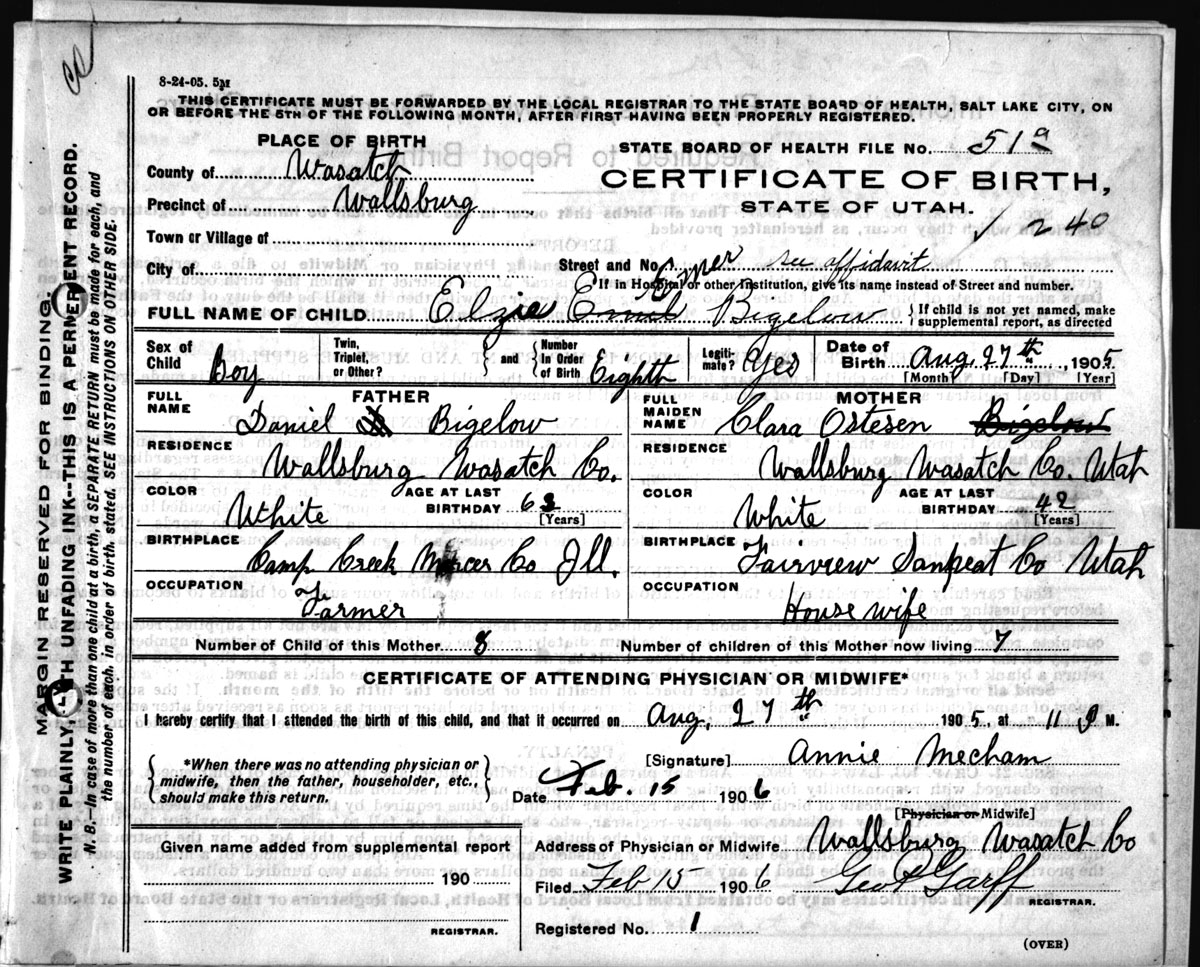 8-24-05. 5M
THIS CERTIFICATE MUST BE FORWARDED BY THE LOCAL REGISTRAR TO THE STATE BOARD OF HEALTH, SALT LAKE CITY, ON
OR BEFORE THE 5TH OF THE FOLLOWING MONTH, AFTER FIRST HAVING BEEN PROPERLY REGISTERED.
PLACE OF BIRTH
County of Wasatch
Precinct of Wallsburg
Town or Village of
City of
STATE BOARD OF HEALTH FILE No. 51a
CERTIFICATE OF BIRTH,
STATE OF UTAH.
240
Street and No. see affidavit
If in Hospital or other Institution, give its name instead of Street and number.
Emer
FULL NAME OF CHILD Elzie Emil Bigelow
If child is not yet named, make
supplemental report, as directed
Sex of Child Boy
Twin, Triplet, or Other?
and
Number In Order of Birth Eighth
Legitimate? Yes
Date of Birth Aug. 27th, 1905
[Month] [Day] [Year]
FATHER
FULL NAME Daniel Bigelow
RESIDENCE Wallsburg Wasatch Co.
COLOR White
AGE AT LAST BIRTHDAY 63
[Years]
BIRTHPLACE Camp Creek Mercer Co Ill.
OCCUPATION Farmer
MOTHER
FULL MAIDEN NAME Clara Ostesen Bigelow
RESIDENCE Wallsburg Wasatch Co. Utah
COLOR White
AGE AT LAST BIRTHDAY 42
[Years]
BIRTHPLACE Fairview Sanpeat Co Utah
OCCUPATION House wife
Number of Child of this Mother 8
Number of children of this Mother now living 7
CERTIFICATE OF ATTENDING PHYSICIAN OR MIDWIFE*
I hereby certify that I attended the birth of this child, and that it occurred on Aug, 27th 1905, at 11 P M.
*When there was no attending physician or
midwife, then the father, householder, etc.,
should make this return.
[Signature] Annie Mecham
Date Feb. 15 1906
[Physician or Midwife]
Given name added from supplemental report
190
REGISTRAR.
Address of Physician or Midwife Wallsburg Wasatch Co
Filed Feb 15 1906 Geo P Garff
REGISTRAR.
Registered No. 1
(OVER)
MARGIN RESERVED FOR BINDING.
WRITE PLAINLY, WITH UNFADING INK--THIS IS A PERMENENT RECORD.
N. B.--In case of more than one child at a birth, a SEPARATE RETURN must be made for each, and
the number of each, in order of birth, stated. SEE INSTRUCTIONS ON OTHER SIDE.